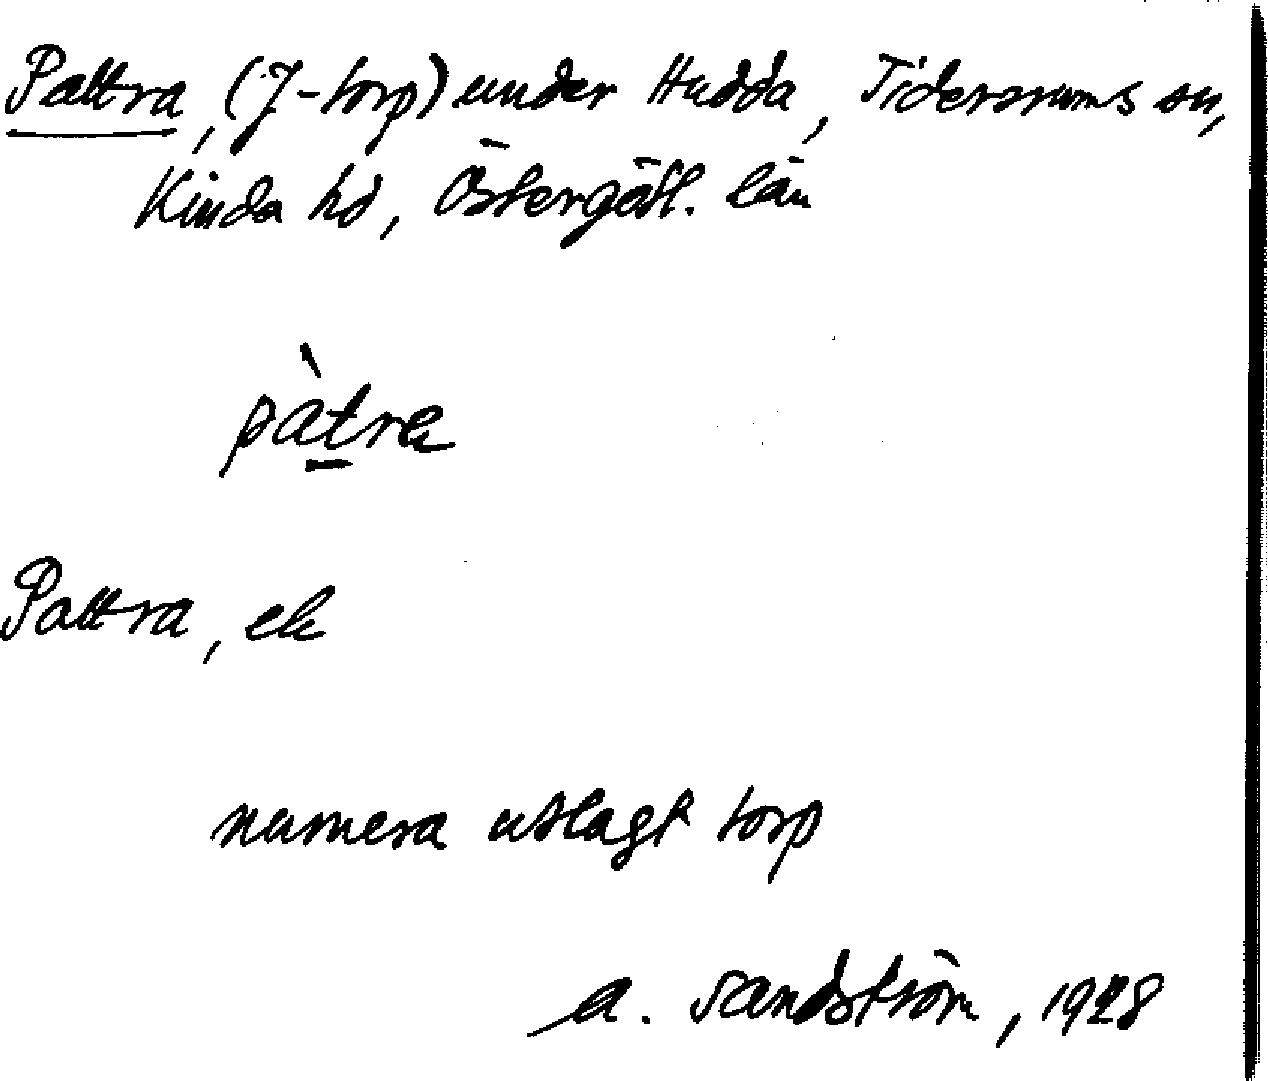 Pattra, (J-torp) under Hudda, Tidersrums sn,
Kinda hd, Östergötl. län
pàtra
Pattra, ek
numera utlagt torp
A. Sandström, 1928